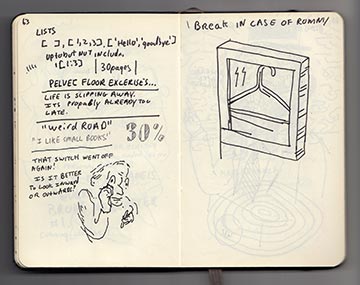 63
LISTS
[ ] , [ 1,2,3 ] , ['Hello', 'goodbye']
up to but NOT include.
[1:3] | 30 pages |
PELVIC FLOOR EXCERISE'S...
LIFE IS SLIPPING AWAY.
ITS PROPABLY ALREADY TOO
LATE.
"weird ROAD"
"I LIKE SMALL BOOKS"
30%
THAT SWITCH WENT OFF
AGAIN!
IS IT BETTER
TO LOOK INWARD
OR OUTWARDS?
Break IN CASE OF ROMNY